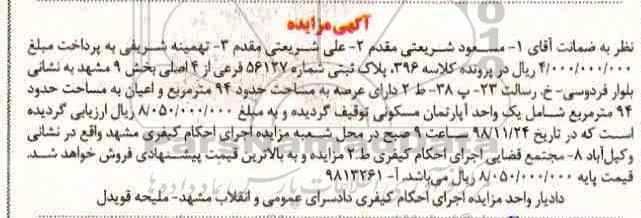 آگهی مزایده
نظر به ضمانت آقای ۱- مسعود شریعتی مقدم ۲- علی شریعتی مقدم ۳- تهمینه شریفی به پرداخت مبلغ
۴/۰۰۰/۰۰۰/۰۰۰ ریال در پرونده کلاسه ۳۹۶، پلاک ثبتی شماره ۵۶۱۲۷ فرعی از ۴ اصلی بخش ۹ مشهد به نشانی
بلوار فردوسی- خ. رسالت ۲۳- پ ۳۸- ط ۲ دارای عرصه به مساحت حدود ۹۴ مترمربع و اعیان به مساحت حدود
۹۴ مترمربع شامل یک واحد آپارتمان مسکونی توقیف گردیده و به مبلغ ۸/۰۵۰/۰۰۰/۰۰۰ ریال ارزیابی گردیده
است که در تاریخ ۹۸/۱۱/۲۴ ساعت ۹ صبح در محل شعبه مزایده اجرای احکام کیفری مشهد واقع در نشانی
وکیل‌آباد ۸- مجتمع قضایی اجرای احکام کیفری ط.۲ مزایده و به بالاترین قیمت پیشنهادی فروش خواهد شد.
قیمت پایه ۸/۰۵۰/۰۰۰/۰۰۰ ریال می‌باشد. آ- ۹۸۱۳۲۶۱
دادیار واحد مزایده اجرای احکام کیفری دادسرای عمومی و انقلاب مشهد- ملیحه قویدل